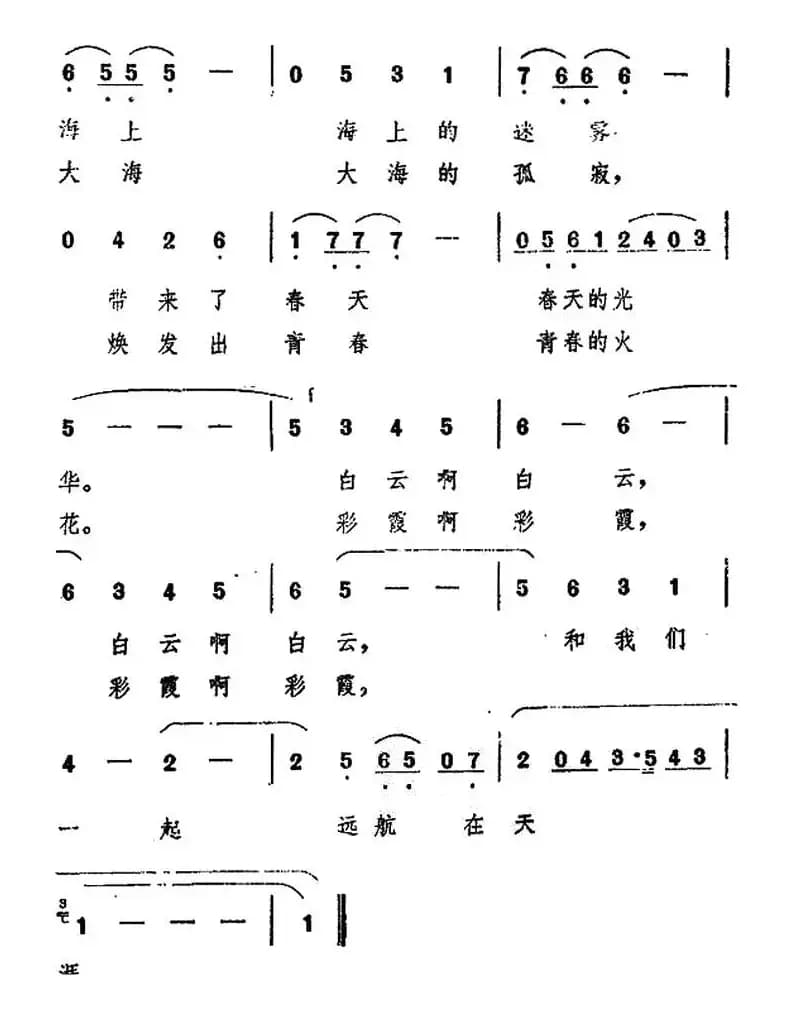 6 5 5 5 — | 0 5 3 1 | 7 6 6 6 — |
海上 海上的迷雾
大海 大海的孤寂，
0 4 2 6 | 1 7 7 7 — | 0 5 6 1 2 4 0 3 |
带来了春天 春天的光
焕发出青春 青春的火
f
5 — — — | 5 3 4 5 | 6 — 6 — |
华。 白云啊白云，
花。 彩霞啊彩霞，
6 3 4 5 | 6 5 — — | 5 6 3 1 |
白云啊白云， 和我们
彩霞啊彩霞，
4 — 2 — | 2 5 6 5 0 7 | 2 0 4 3 · 5 4 3 |
一起 远航在天
3
1 — — — | 1 ‖
涯